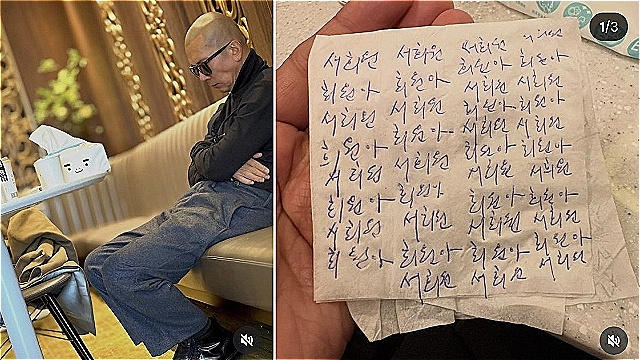 1/3
서희원 서희원 서희원 서희원
희원아 희원아 희원아 희원아
서희원 서희원 서희원 서희원
희원아 희원아 희원아 희원아
서희원 서희원 서희원 서희원
희원아 희원아 희원아 희원아
서희원 서희원 서희원 서희원
희원아 희원아 희원아 희원아
서희원 서희원 서희원
희원아 희원아
서희원 서희원